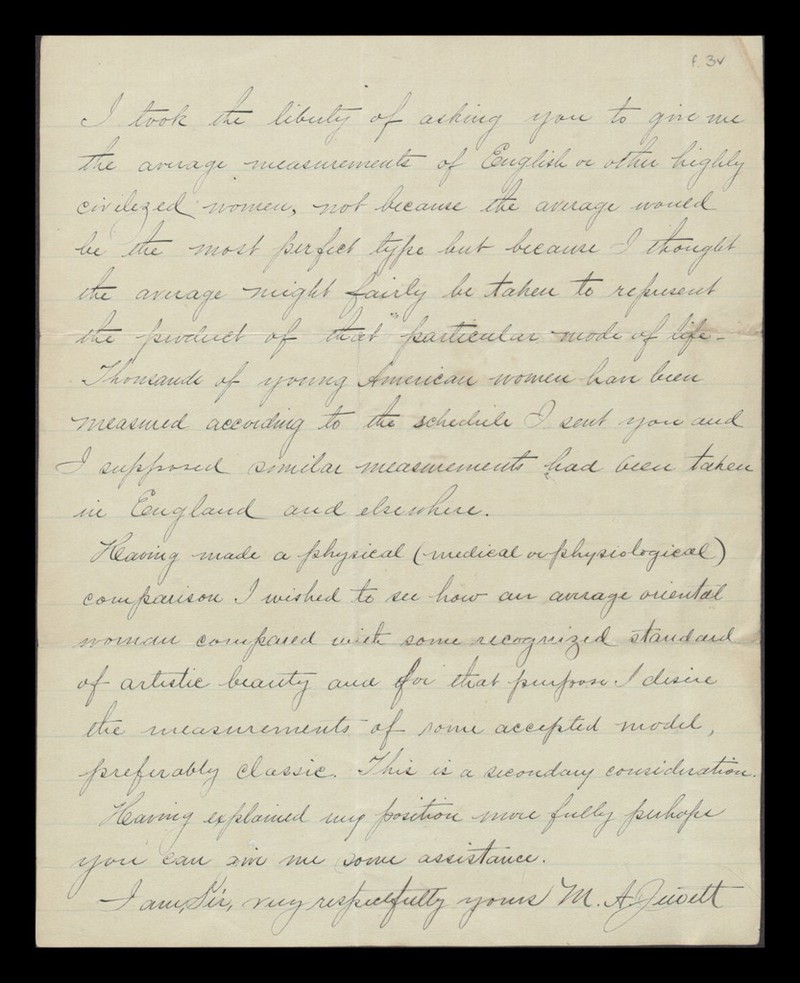 f. 3v
I took the liberty of asking you to give me
the average measurements of English or other highly
civilezed women, not because the average would
be the most perfect type but because I thought
the average might fairly be taken to represent
the product of that particular mode of life -
Thousands of young American women have been
measured according to the schedule I sent you and
I supposed similar measurements had been taken
in England and elsewhere.
Having made a physical (medical or physiological)
comparison I wished to see how an average oriental
woman compared with some recognized standard
of artistic beauty and for that purpose I desire
the measurements of some accepted model,
preferably classic. This is a secondary consideration.
Having explained my position more fully perhaps
you can give me some assistance.
I am, Sir, very respectfully yours M. A. Jewett